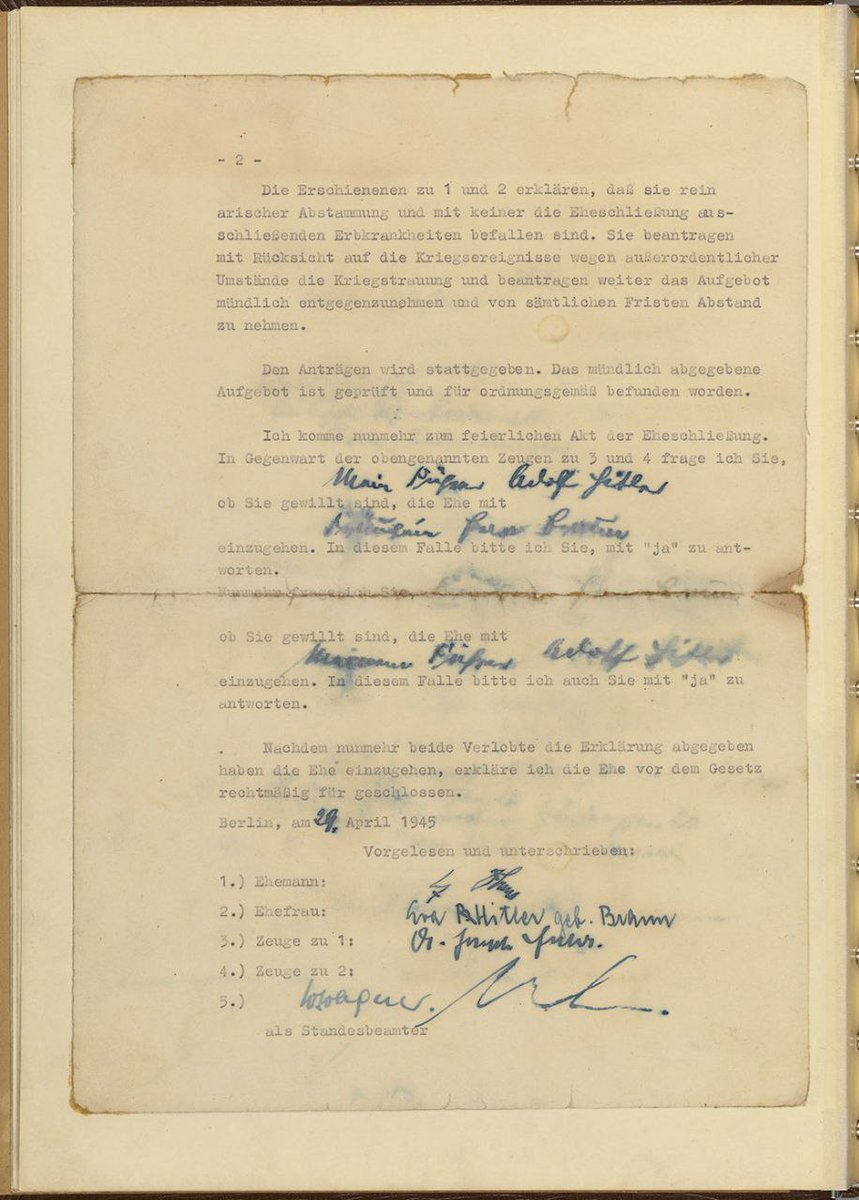 - 2 -
Die Erschienenen zu 1 und 2 erklären, daß sie rein
arischer Abstammung und mit keiner die Eheschließung aus-
schließenden Erbkrankheiten befallen sind. Sie beantragen
mit Rücksicht auf die Kriegsereignisse wegen außerordentlicher
Umstände die Kriegstrauung und beantragen weiter das Aufgebot
mündlich entgegenzunehmen und von sämtlichen Fristen Abstand
zu nehmen.
Den Anträgen wird stattgegeben. Das mündlich abgegebene
Aufgebot ist geprüft und für ordnungsgemäß befunden worden.
Ich komme nunmehr zum feierlichen Akt der Eheschließung.
In Gegenwart der obengenannten Zeugen zu 3 und 4 frage ich Sie,
Mein Führer Adolf Hitler
ob Sie gewillt sind, die Ehe mit
Fräulein Eva Braun
einzugehen. In diesem Falle bitte ich Sie, mit "ja" zu ant-
worten.
Nunmehr frage ich Sie,
ob Sie gewillt sind, die Ehe mit
Meinem Führer Adolf Hitler
einzugehen. In diesem Falle bitte ich auch Sie mit "ja" zu
antworten.
Nachdem nunmehr beide Verlobte die Erklärung abgegeben
haben die Ehe einzugehen, erkläre ich die Ehe vor dem Gesetz
rechtmäßig für geschlossen.
Berlin, am 29. April 1945
Vorgelesen und unterschrieben:
1.) Ehemann:
2.) Ehefrau: Eva B Hitler geb. Braun
3.) Zeuge zu 1: Dr. Joseph
4.) Zeuge zu 2:
5.) Wagner.
als Standesbeamter